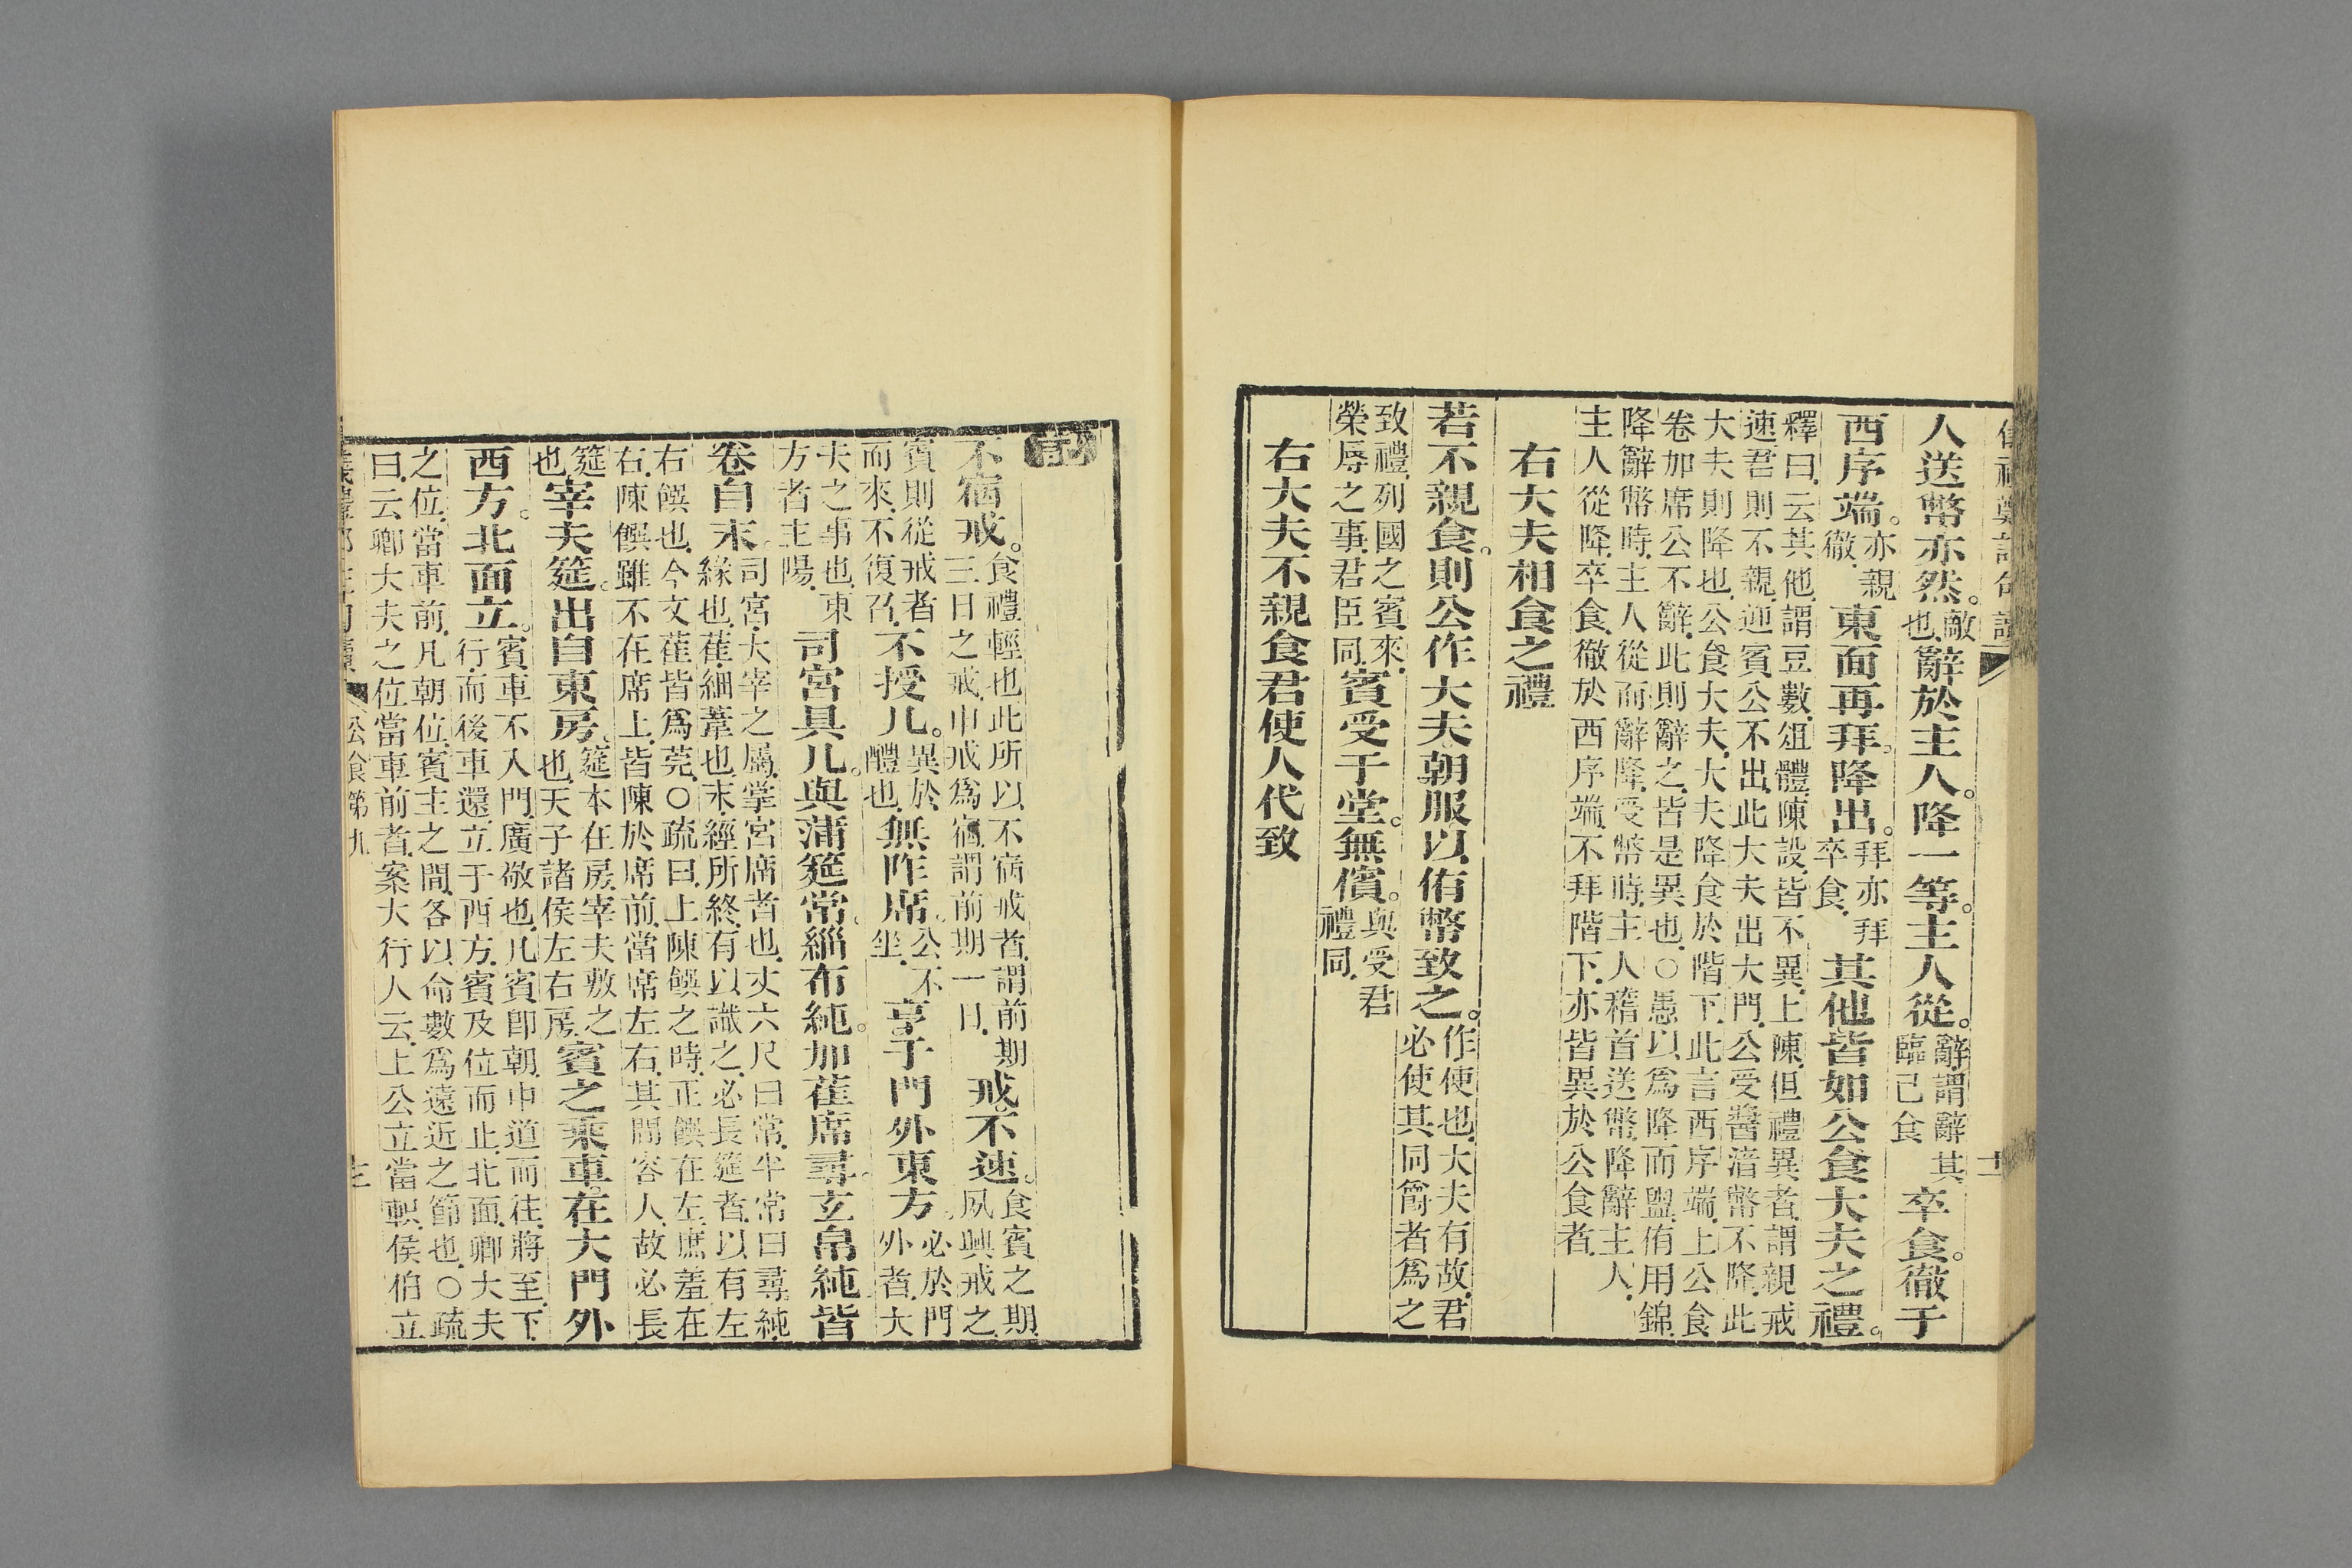 儀禮鄭註句讀
人送幣亦然。敵也辭於主人。降一等。主人從。辭謂辭其臨己食卒食。徹于
西序端。亦親徹東面再拜。降出。拜亦拜卒食其他皆如公食大夫之禮。
釋曰云其他謂豆數俎體陳設皆不異上陳但禮異者謂親戒
速君則不親迎賓公不出此大夫出大門公受醬湆幣不降此
大夫則降也公食大夫大夫降食於階下此言西序端上公食
卷加席公不辭此則辭之皆是異也○愚以爲降而盥侑用錦
降辭幣時主人從而辭降受幣時主人稽首送幣降辭主人
主人從降卒食徹於西序端不拜階下亦皆異於公食者
右大夫相食之禮
若不親食。則公作大夫朝服以侑幣致之。作使也大夫有故君必使其同爵者爲之
致禮列國之賓來榮辱之事君臣同賓受于堂。無儐。與受君禮同
右大夫不親食君使人代致
記
不宿戒。食禮輕也此所以不宿戒者謂前期三日之戒申戒爲宿謂前期一日戒不速。食賓之期夙興戒之
賓則從戒者而來不復召不授几。異於醴也無阼席。公不坐亨于門外東方。必於門外者大
夫之事也東方者主陽司宮具几。與蒲筵常。緇布純。加萑席尋。玄帛純皆
卷自末。司宮大宰之屬掌宮席者也丈六尺曰常半常曰尋純緣也萑細葦也末經所終有以識之必長筵者以有左
右饌也今文萑皆爲莞○疏曰上陳饌之時正饌在左庶羞在
右陳饌雖不在席上皆陳於席前當席左右其間容人故必長
筵也宰夫筵。出自東房。筵本在房宰夫敷之也天子諸侯左右房賓之乘車。在大門外
西方。北面立。賓車不入門廣敬也凡賓卽朝中道而往將至下行而後車還立于西方賓及位而止北面卿大夫
之位當車前凡朝位賓主之間各以命數爲遠近之節也○疏
曰云卿大夫之位當車前者案大行人云上公立當軹侯伯立
公食第九